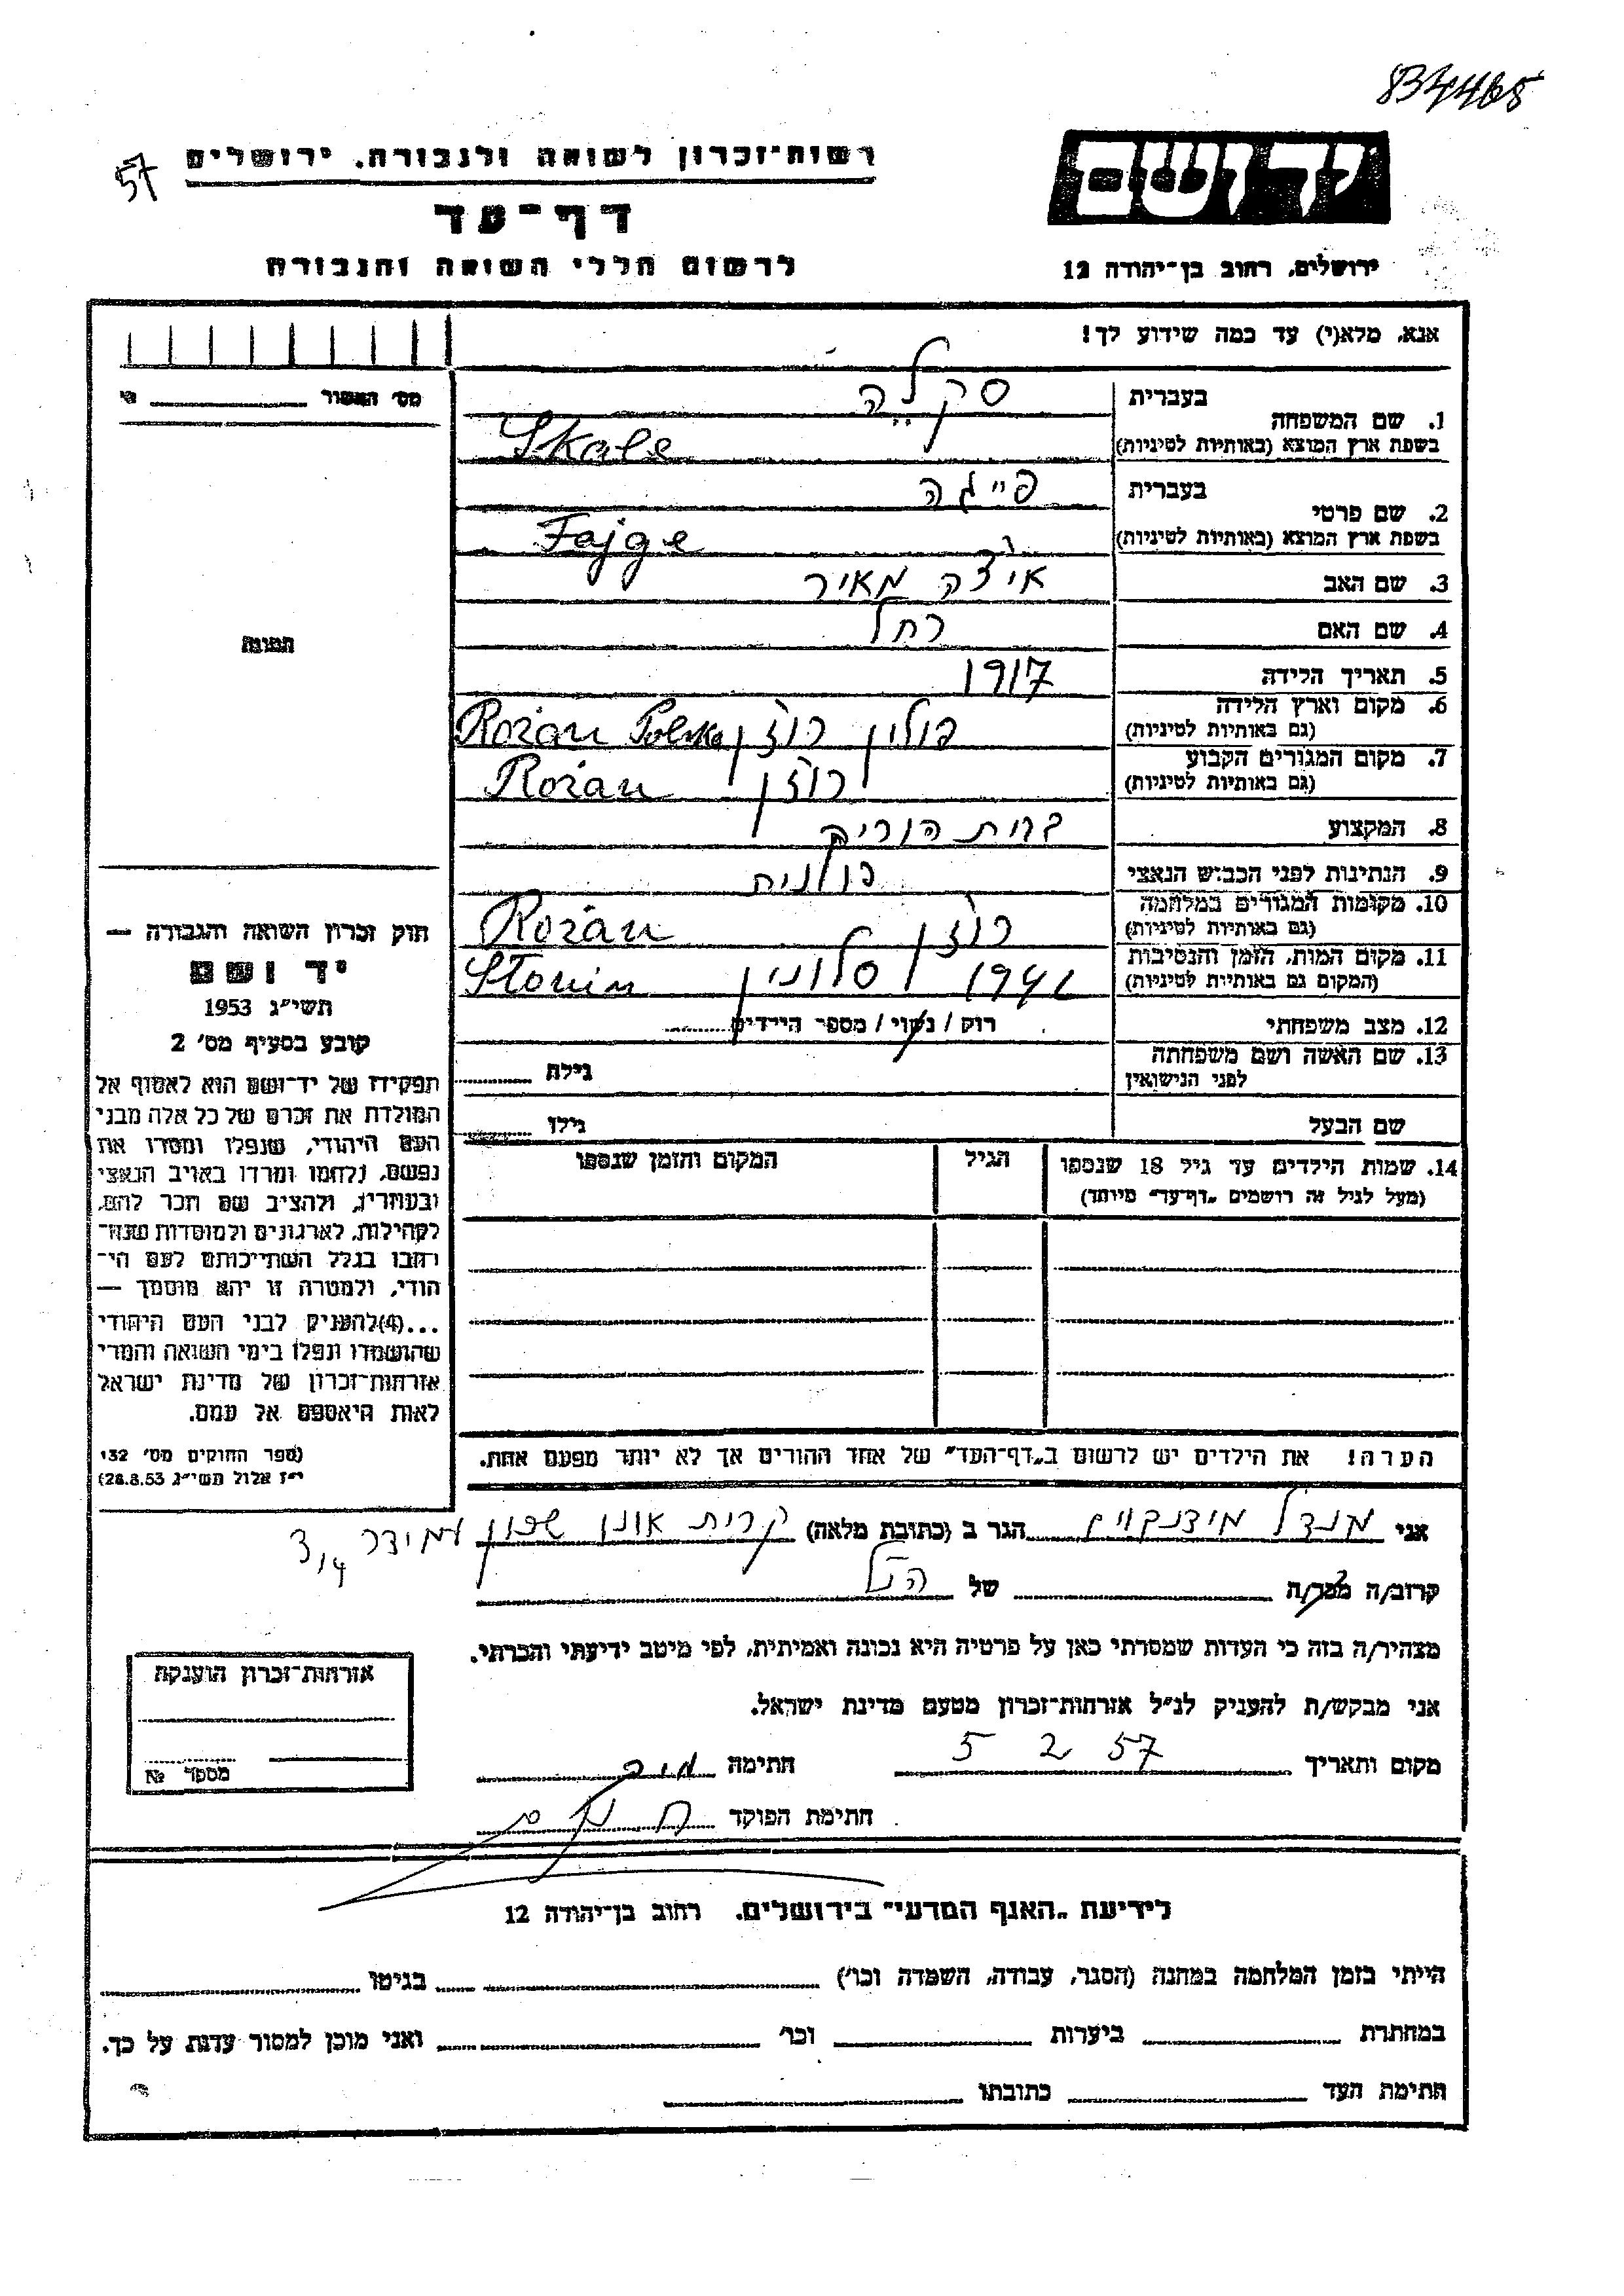 834465
57
רשות־זכרון לשואה ולגבורה, ירושלים
יד ושם
דף־עד
לרשום חללי השואה והגבורה
ירושלים, רחוב בן־יהודה 12
אנא, מלא(י) עד כמה שידוע לך!
מס' האשור
1. שם המשפחה
בעברית
סקלה
בשפת ארץ המוצא (באותיות לטיניות)
Skale
2. שם פרטי
בעברית
פייגה
בשפת ארץ המוצא (באותיות לטיניות)
Fajge
3. שם האב
איצה מאיר
4. שם האם
רחל
5. תאריך הלידה
1917
6. מקום וארץ הלידה
(גם באותיות לטיניות)
פולין רוז'ן Rożan Polska
7. מקום המגורים הקבוע
(גם באותיות לטיניות)
רוז'ן Rożan
8. המקצוע
בבית הוריה
9. הנתינות לפני הכבוש הנאצי
פולנית
10. מקומות המגורים במלחמה
(גם באותיות לטיניות)
רוז'ן Rożan
11. מקום המות, הזמן והנסיבות
(המקום גם באותיות לטיניות)
1941 סלונין Słonin
12. מצב משפחתי
רוק / נשוי / מספר הילדים
13. שם האשה ושם משפחתה
לפני הנישואין
גילה
שם הבעל
גילו
14. שמות הילדים עד גיל 18 שנספו
(מעל לגיל זה רושמים „דף־עד" מיוחד)
הגיל
המקום והזמן שנספו
הערה! את הילדים יש לרשום ב„דף־העד" של אחד ההורים אך לא יותר מפעם אחת.
תמונה
חוק זכרון השואה והגבורה —
יד ושם
תשי״ג 1953
קובע בסעיף מס' 2
תפקידו של יד־ושם הוא לאסוף אל
המולדת את זכרם של כל אלה מבני
העם היהודי, שנפלו ומסרו את
נפשם, נלחמו ומרדו באויב הנאצי
ובעוזריו, ולהציב שם וזכר להם,
לקהילות, לארגונים ולמוסדות שנח־
רבו בגלל השתייכותם לעם הי־
הודי, ולמטרה זו יהא מוסמך —
...(4)להעניק לבני העם היהודי
שהושמדו ונפלו בימי השואה והמרי
אזרחות־זכרון של מדינת ישראל
לאות היאספם אל עמם.
(ספר החוקים מס' 132
י״ז אלול תשי״ג 28.8.53)
אני מנדל הגר ב (כתובת מלאה) קרית אונן שכון
קרוב/ה מכר/ה של הנ״ל
מצהיר/ה בזה כי העדות שמסרתי כאן על פרטיה היא נכונה ואמיתית, לפי מיטב ידיעתי והכרתי.
אני מבקש/ת להעניק לנ״ל אזרחות־זכרון מטעם מדינת ישראל.
מקום ותאריך 5 2 57 חתימה
חתימת הפוקד
אזרחות־זכרון הוענקה
מספר №
לידיעת „האגף המדעי" בירושלים, רחוב בן־יהודה 12
הייתי בזמן המלחמה במחנה (הסגר, עבודה, השמדה וכו') בגיטו
במחתרת ביערות וכו' ואני מוכן למסור עדות על כך.
חתימת העד כתובתו